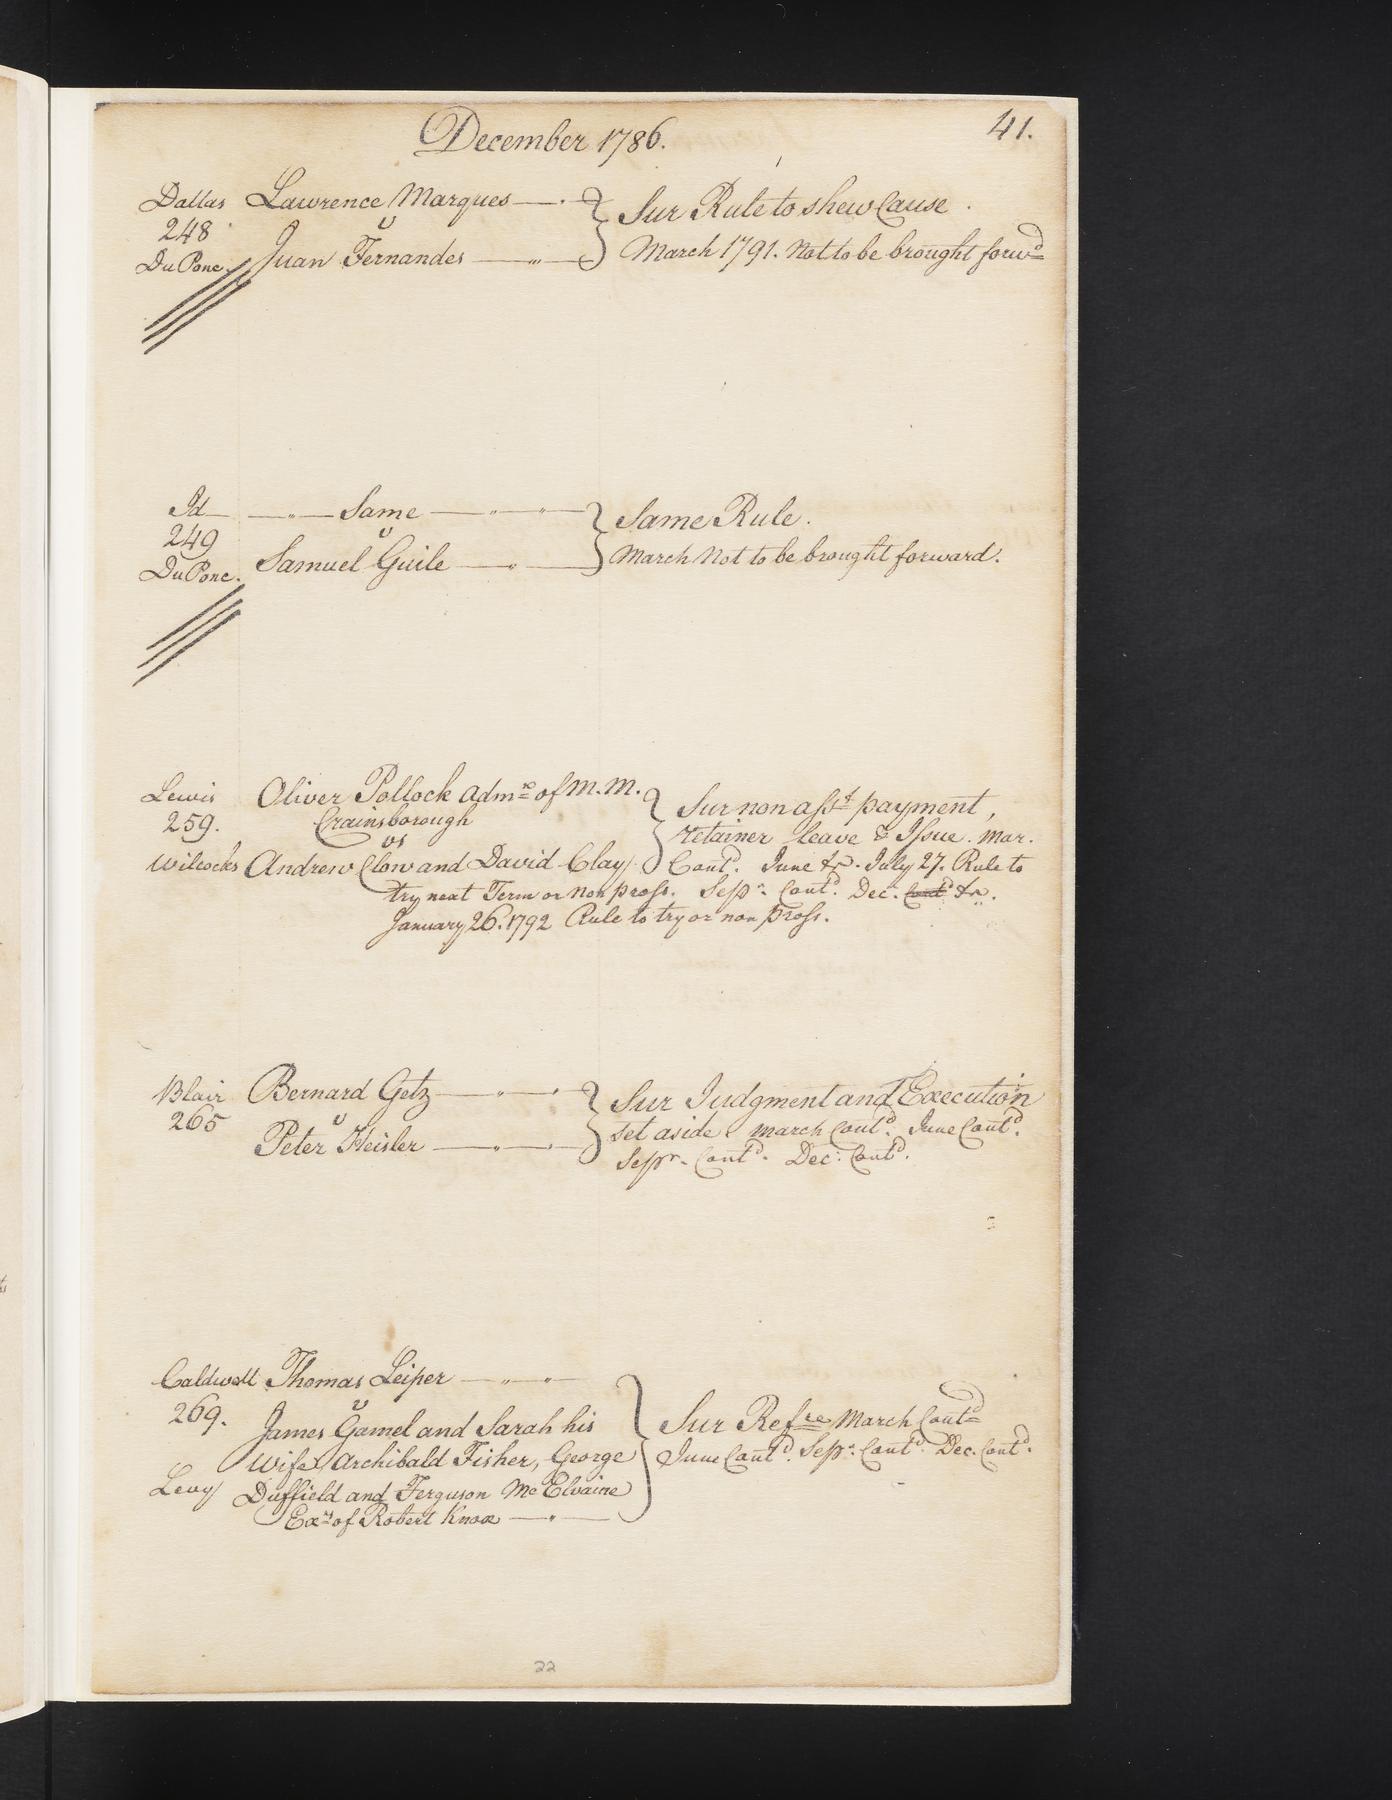 December 1786.
41.
Dallas Lawrence Marques } Sur Rule to shew Cause.
248 v
DuPonc. Juan Fernandes } March 1791. Not to be brought forwd
Id Same } Same Rule.
249 v
DuPonc. Samuel Guile } March Not to be brought forward.
Lewis Oliver Pollock admr of M.M. } Sur non asst payment,
259. Crainsborough retainer leave & Issue. Mar.
vs
Wilcocks Andrew Clow and David Clay } Contd. June &c. July 27. Rule to
try next Term or non pross. Sepr. Contd. Dec. Contd &c.
January 26. 1792 Rule to try or non pross.
Blair Bernard Getz } Sur Judgment and Execution
265 v set aside March Contd. June Contd.
Peter Heisler } Sepr. Contd. Dec. Contd.
Caldwell Thomas Leiper
269. v
James Gamel and Sarah his } Sur Refre March Contd
wife, Archibald Fisher, George } June Contd. Sepr. Contd. Dec. Contd.
Levy Duffield and Ferguson McElvaine
Exrs of Robert Knox
22